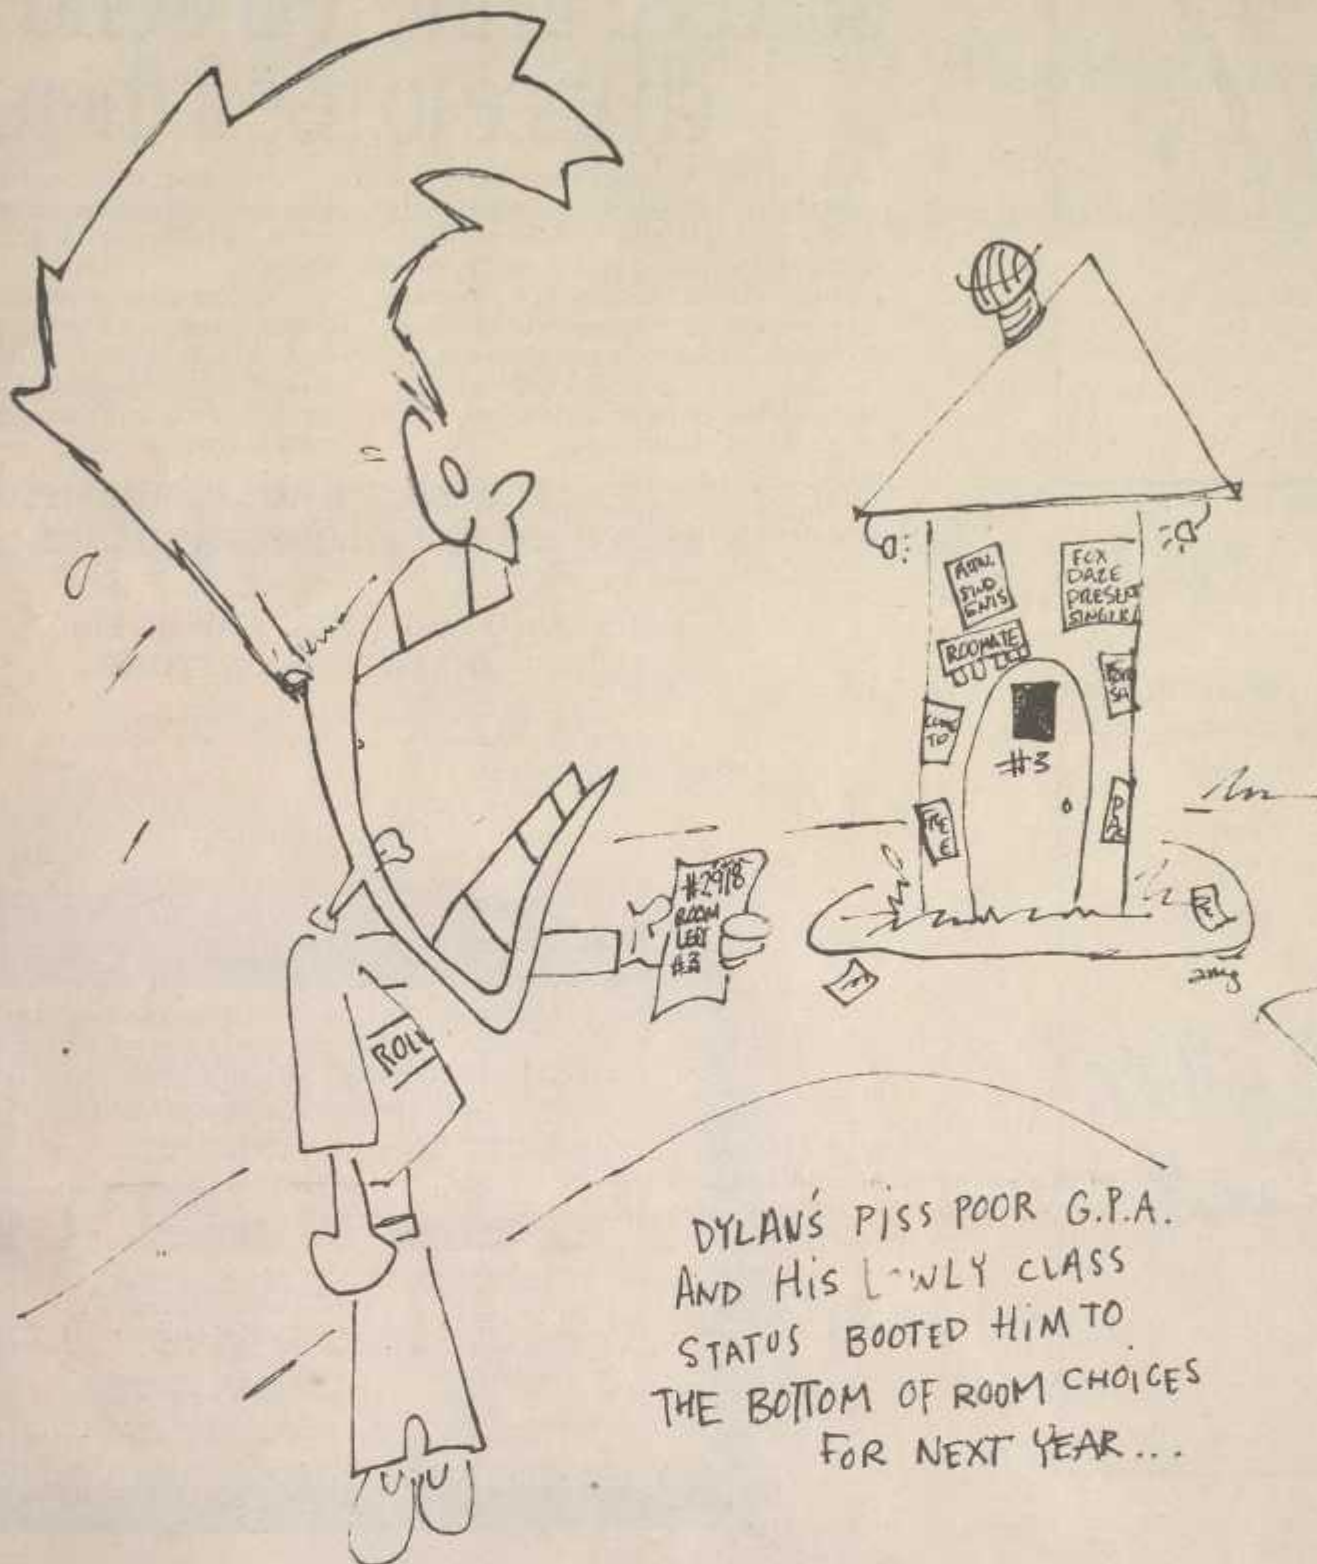 ROOMATE
FOX
DAZE
PRESENT
SINGER
#3
#2918
ROOM
LEFT
#3
ROLL
DYLAN'S PISS POOR G.P.A.
AND HIS LOWLY CLASS
STATUS BOOTED HIM TO
THE BOTTOM OF ROOM CHOICES
FOR NEXT YEAR...